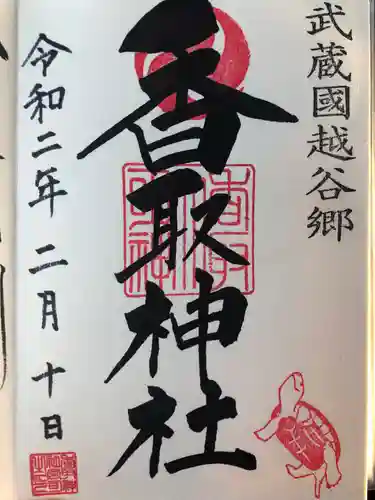 武蔵國越谷郷
香取神社
令和二年 二月 十日